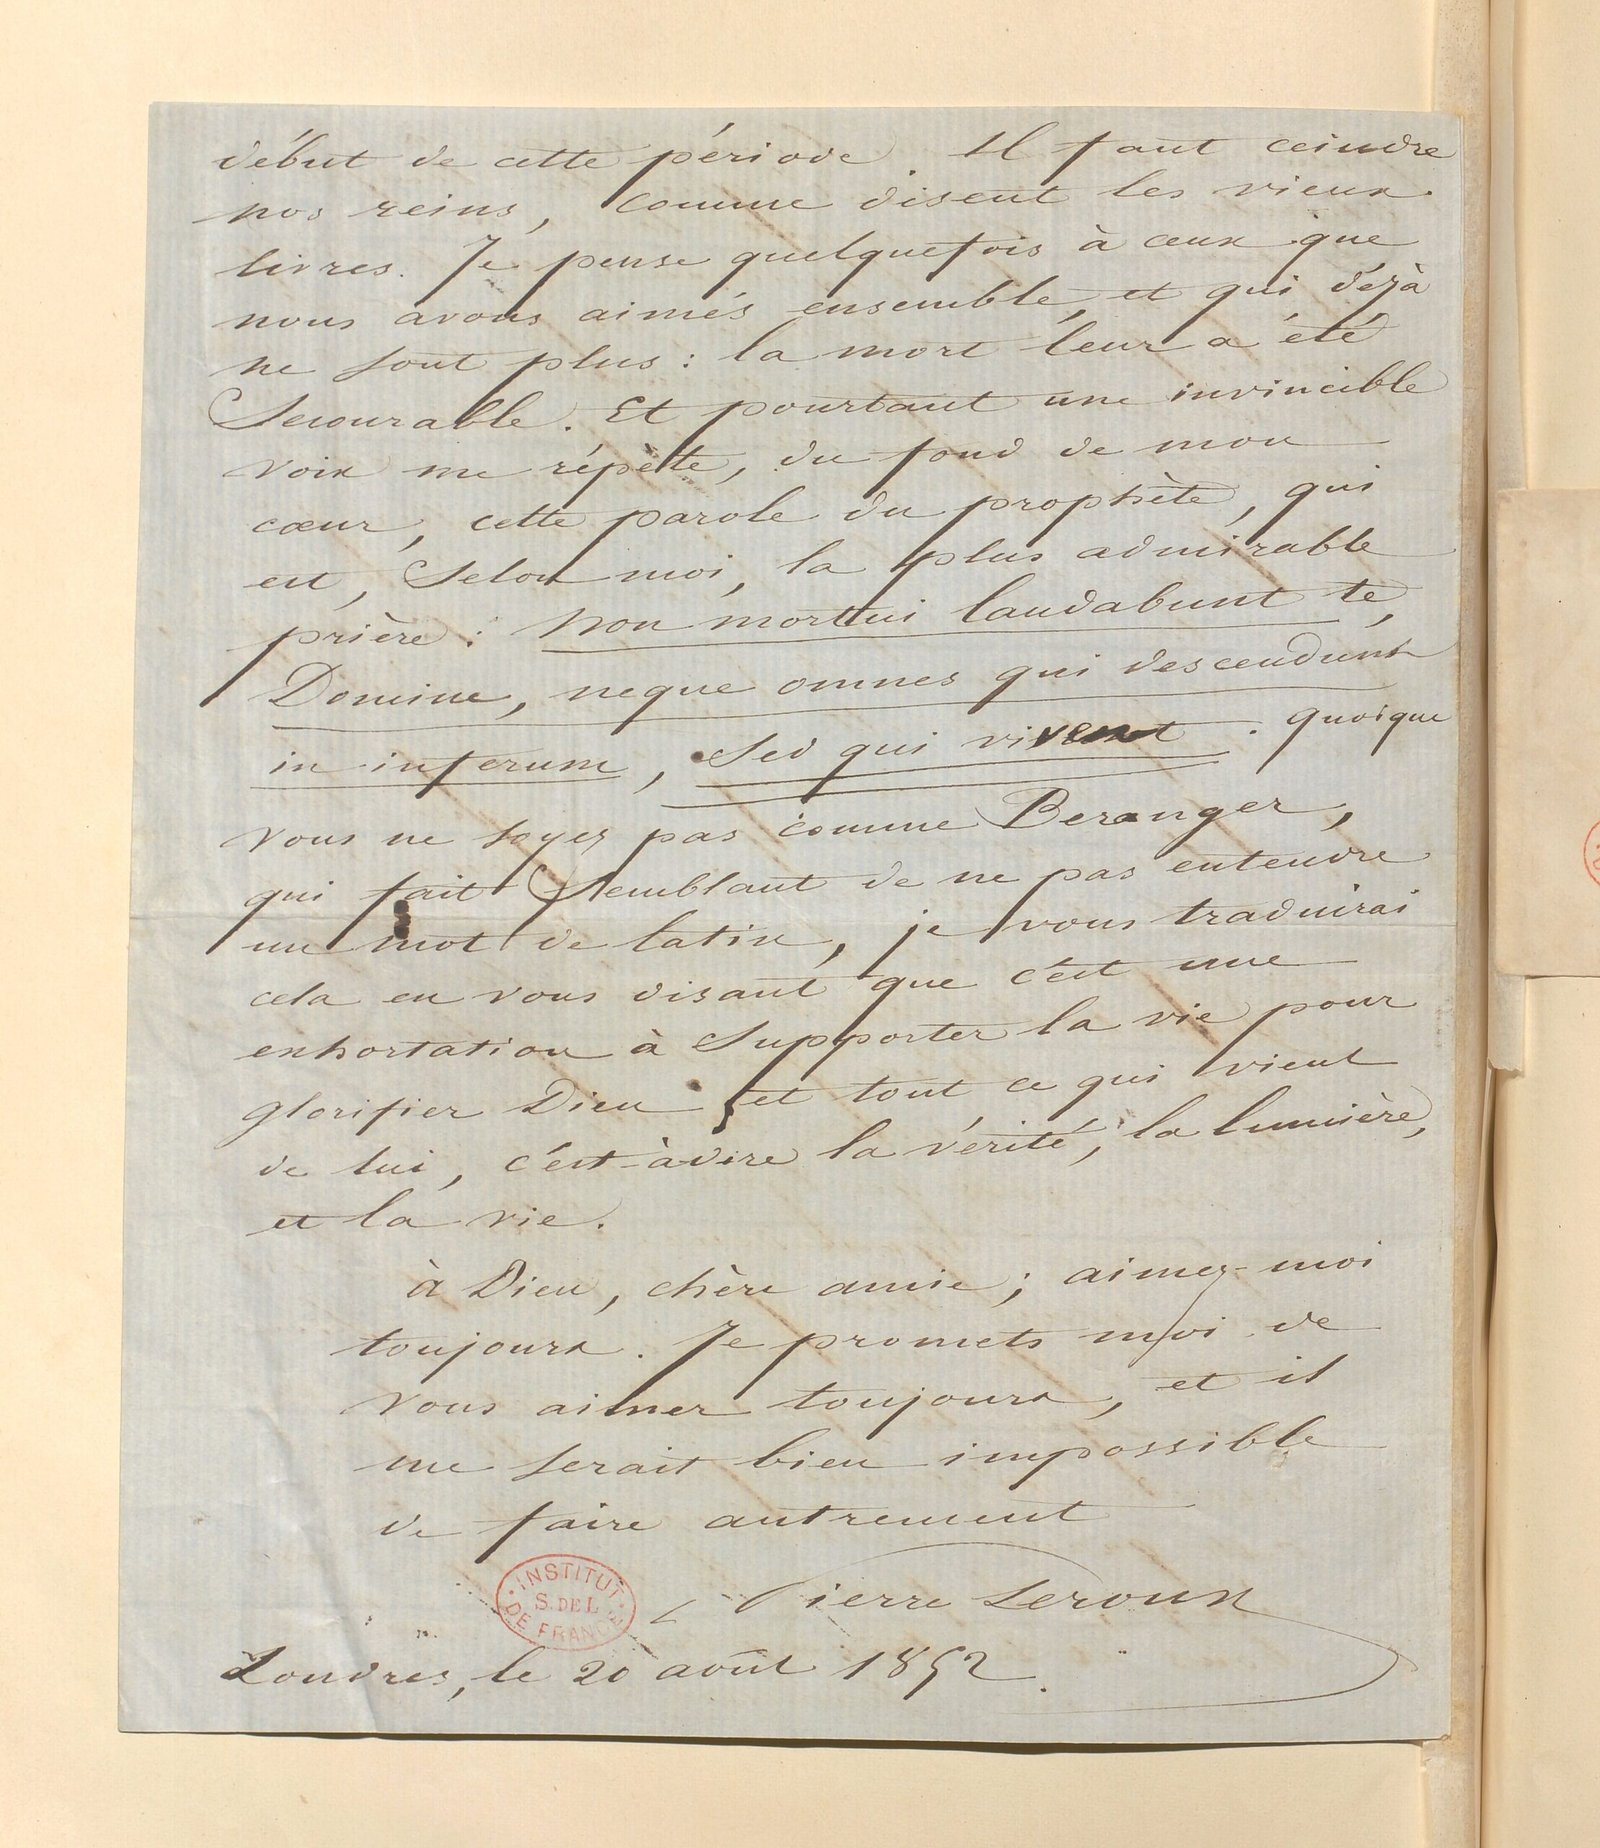 début de cette période. Il faut ceindre
nos reins, comme disent les vieux
livres. Je pense quelquefois à ceux que
nous avons aimés ensemble, et qui déjà
ne sont plus : la mort leur a été
Secourable. Et pourtant une invincible
voix me répète, du fond de mon
cœur, cette parole du prophète, qui
est, Selon moi, la plus admirable
prière : Non mortui laudabunt te,
Domine, neque omnes qui descendunt
in infernum, Sed qui vivent. quoique
vous ne soyez pas comme Beranger,
qui fait Semblant de ne pas entendre
un mot de latin, je vous traduirai
cela en vous disant que c'est une
exhortation à Supporter la vie pour
glorifier Dieu et tout ce qui vient
de lui, c'est-à-dire la vérité, la lumière,
et la vie.
à Dieu, chère amie ; aimez-moi
toujours. Je promets moi de
vous aimer toujours, et il
me serait bien impossible
de faire autrement
Pierre Leroux
INSTITUT
S. DE L
DE FRANCE
Londres, le 20 août 1852.